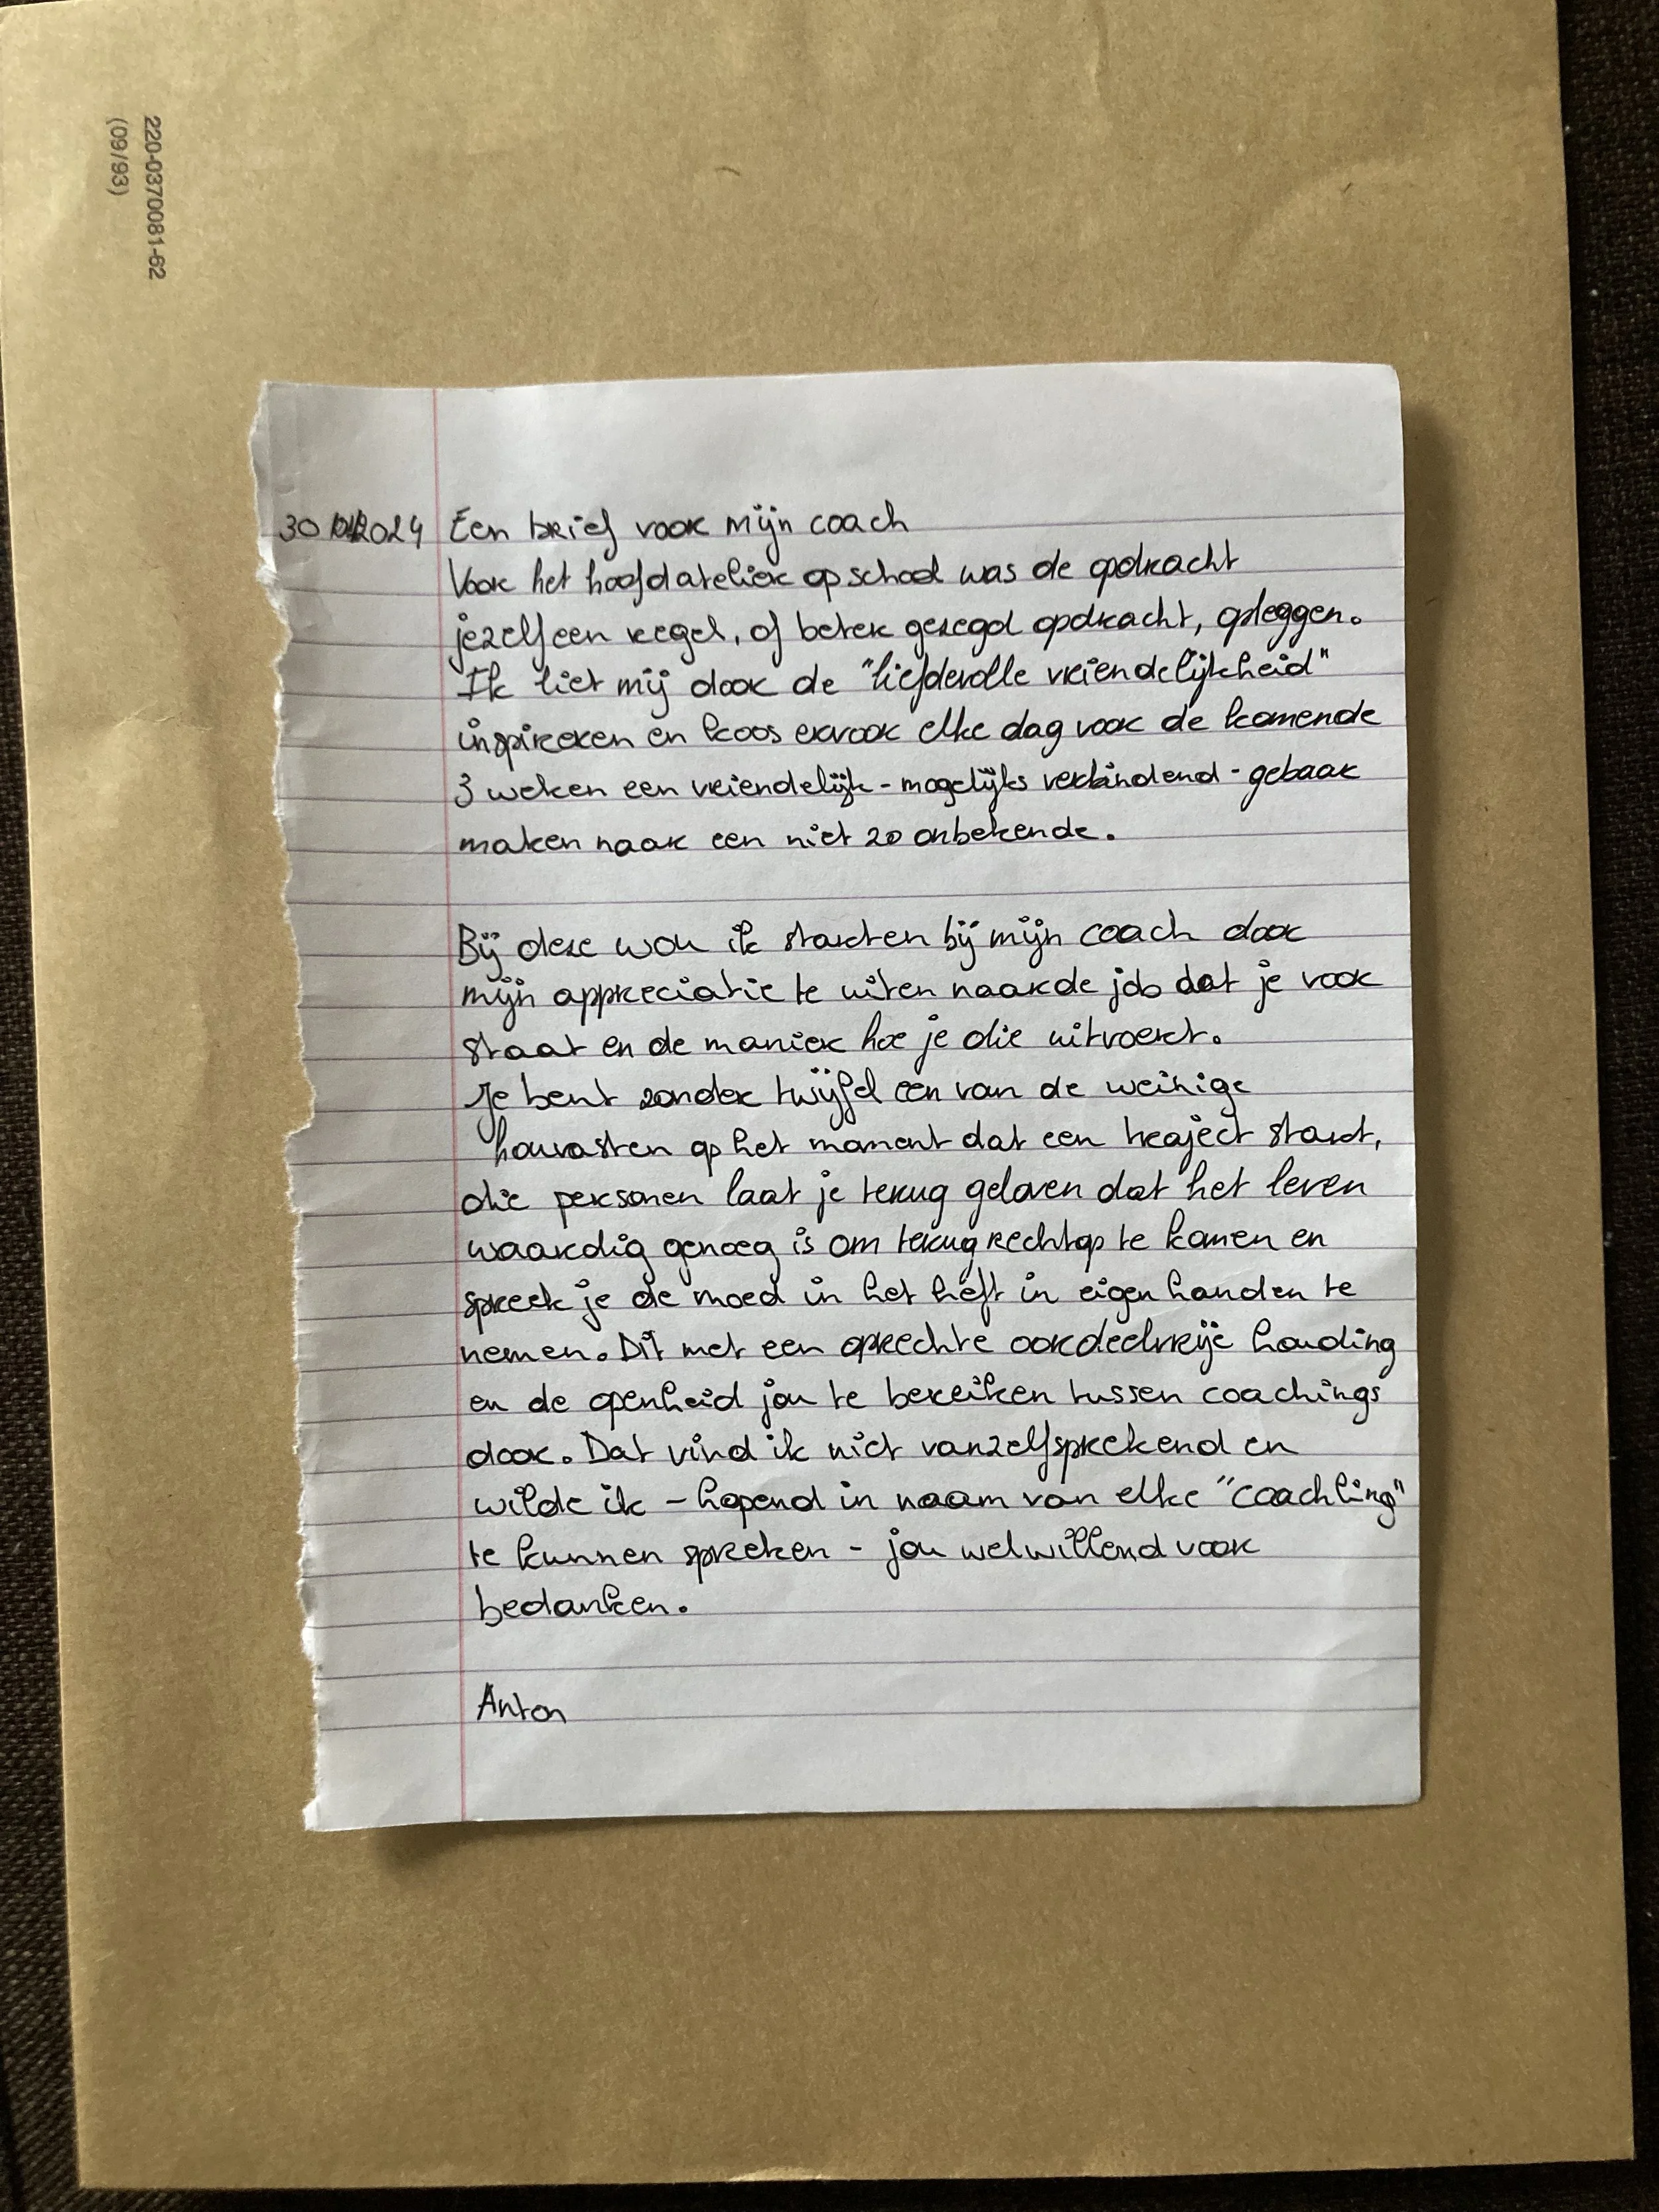 220-0370081-62
(09/93)
30 2024 Een brief voor mijn coach
Voor het hoofdatelier op school was de opdracht
jezelf een regel, of beter gezegd opdracht, opleggen.
Ik liet mij door de "liefdevolle vriendelijkheid"
inspireren en koos ervoor elke dag voor de komende
3 weken een vriendelijk - mogelijks verbindend - gebaar
maken naar een niet zo onbekende.
Bij deze wou ik starten bij mijn coach door
mijn appreciatie te uiten naar de job dat je voor
staat en de manier hoe je die uitvoert.
Je bent zonder twijfel een van de weinige
houvasten op het moment dat een traject start,
die personen laat je terug geloven dat het leven
waardig genoeg is om terug rechtop te komen en
spreek je de moed in het heft in eigen handen te
nemen. Dit met een oprechte oordeelvrije houding
en de openheid jou te bereiken tussen coachings
door. Dat vind ik niet vanzelfsprekend en
wilde ik - hopend in naam van elke "coachling"
te kunnen spreken - jou welwillend voor
bedanken.
Anton